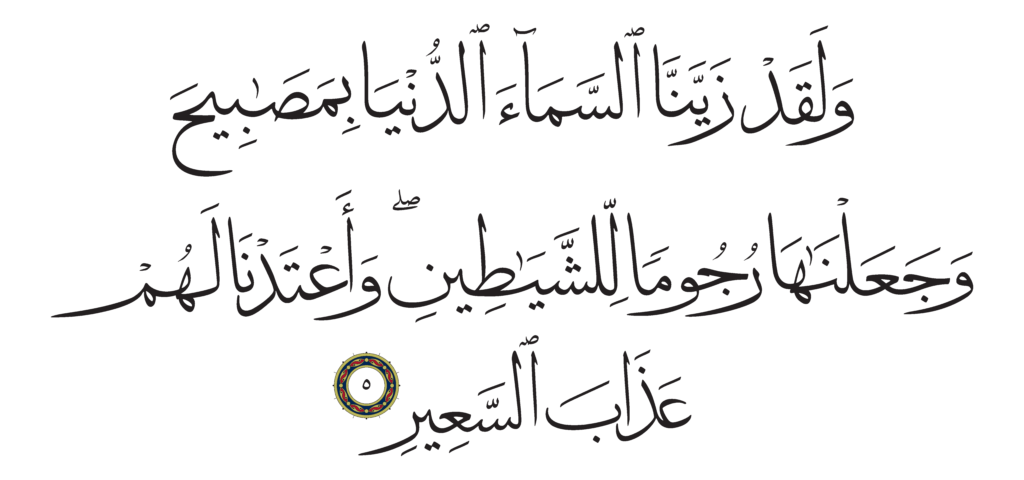 وَلَقَدْ زَيَّنَّا ٱلسَّمَآءَ ٱلدُّنْيَا بِمَصَٰبِيحَ
وَجَعَلْنَٰهَا رُجُومًا لِّلشَّيَٰطِينِ ۖ وَأَعْتَدْنَا لَهُمْ
عَذَابَ ٱلسَّعِيرِ ٥